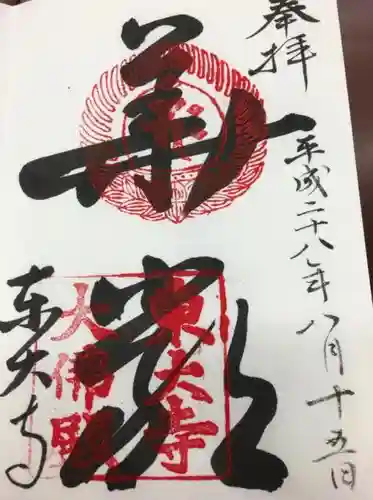 奉拝
平成二十八年八月十五日
華厳
東大寺
東大寺
大佛殿